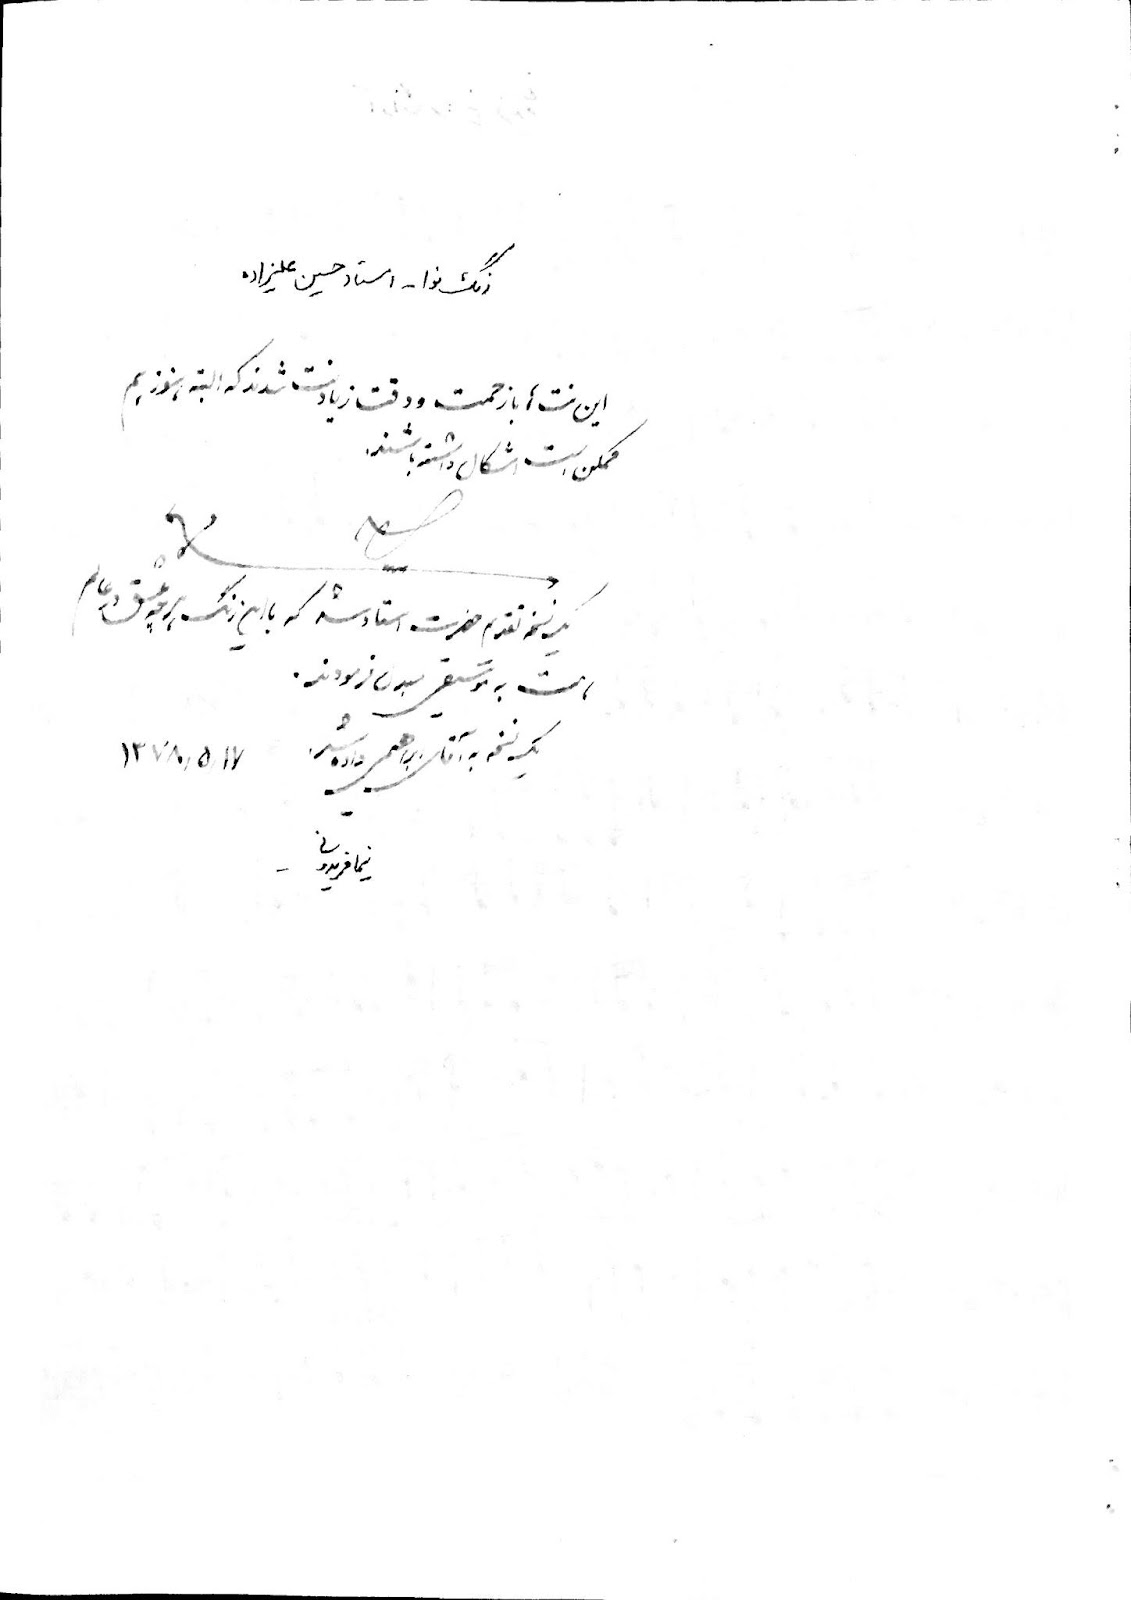 زنگ نوا - استاد حسین علیزاده
این نت ها با زحمت و دقت زیاد نت شدند که البته هنوز هم
ممکن است اشکال داشته باشند.
یک نسخه تقدیم حضرت استاد شد که با این زنگ هر چه عشق در عالم
است به موسیقی مبدل فرمودند.
یک نسخه به آقای ابراهیمی داده شد. ۱۳۷۸،۵،۱۷
نیما فریدونی